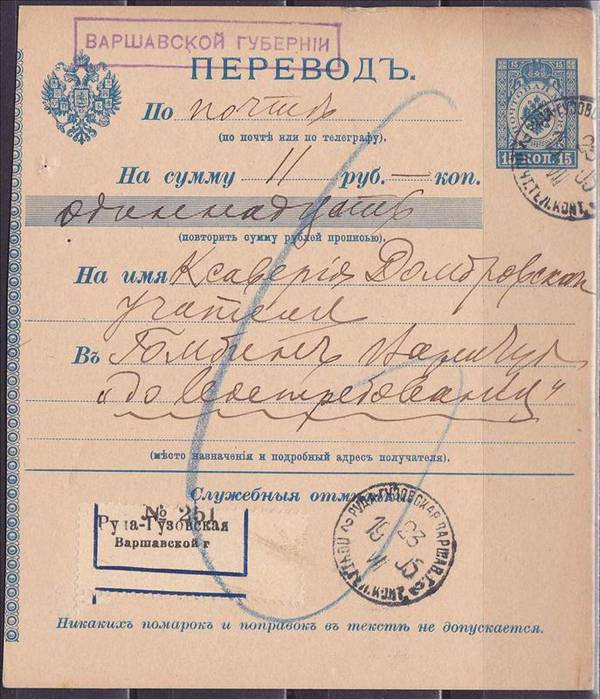 ВАРШАВСКОЙ ГУБЕРНІИ
ПЕРЕВОДЪ.
По почтѣ
(по почтѣ или по телеграфу).
15 КОП. 15
На сумму 11 руб. — коп.
одиннадцать
(повторить сумму рублей прописью).
На имя Ксаверія Домбровскаго
учителя
Въ Гомбинъ
„До востребованія“
(мѣсто назначенія и подробный адресъ получателя).
Служебныя
№ 251
Руда-Гузовская
Варшавской г
РУДА-ГУЗОВСКАЯ ВАРШАВ. Г.
23
05
Никакихъ помарокъ и поправокъ въ текстѣ не допускается.